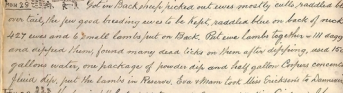 Nov 29 Got in Back sheep, picked out ewes mostly culls raddled bl
over tail, the few good breeding ewes to be kept, raddled blue on back of neck
427 ewes and 6 small lambs put on Back. Put ewe lambs together = 111 daggy
and dipped them, found many dead ticks on them after dipping, used 160
gallons water, one package of powder dip and half gallon Coopers concent
fluid dip, put the lambs in Reserve. Eva & Mam took Miss Erickson to Dannevir